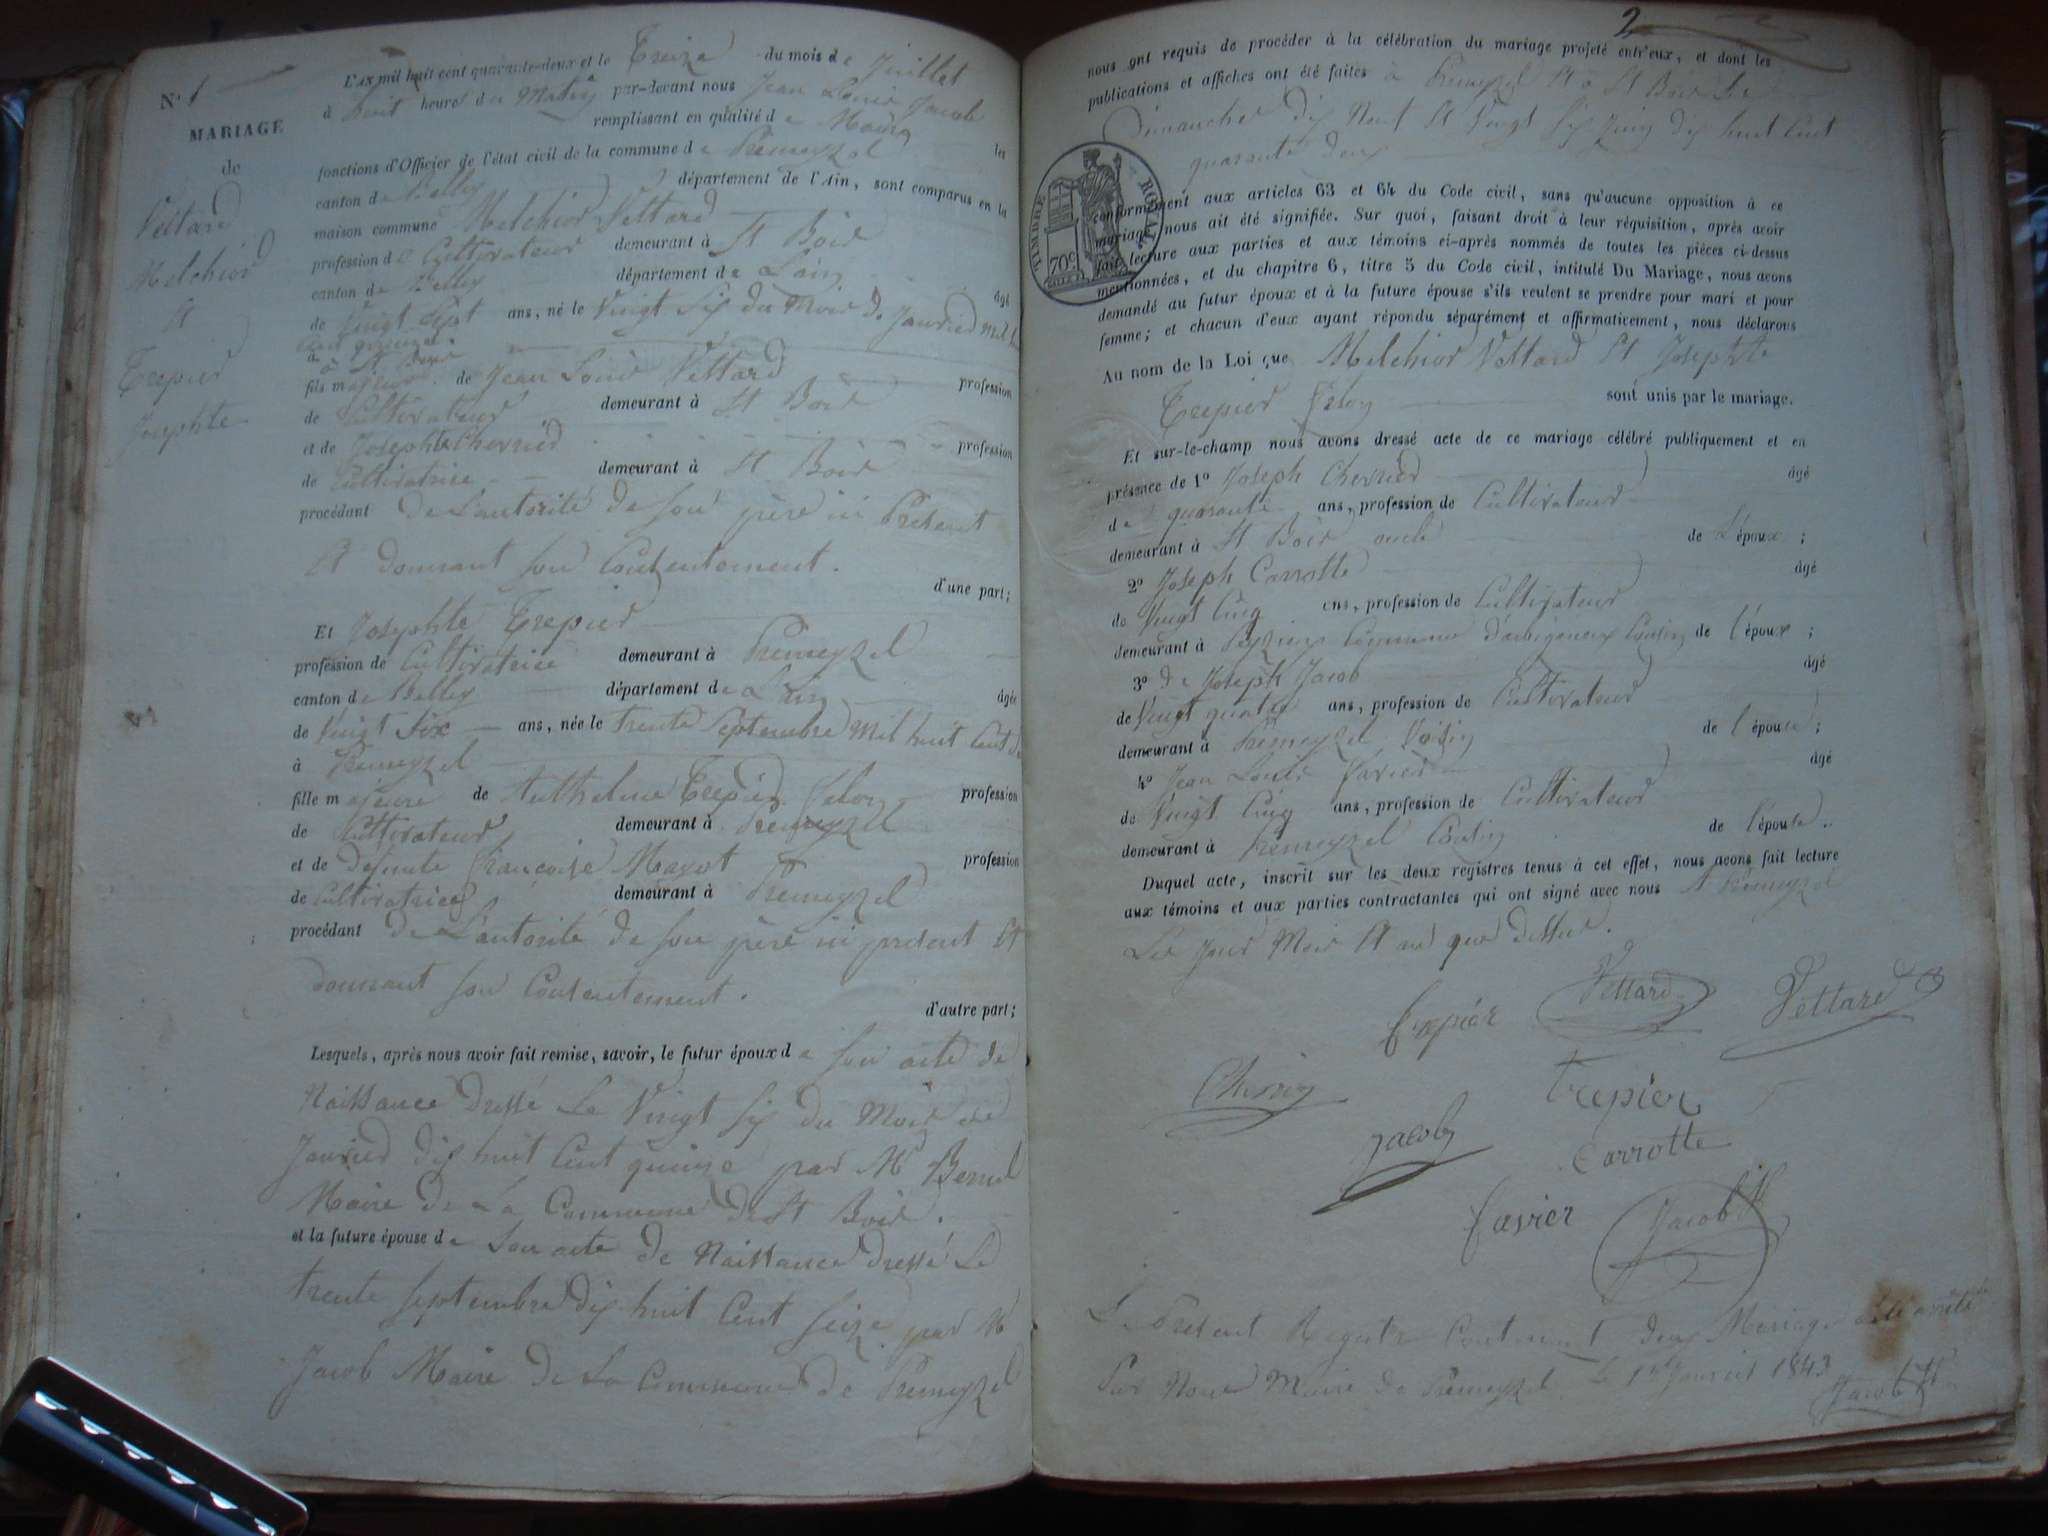 N° 1
MARIAGE
de
Vettard
Melchior
Et
Trepier
Josephte
L'AN mil huit cent quarante-deux et le Treize du mois de Juillet
à huit heures du Matin par-devant nous Jean Louis Jacob
remplissant en qualité de Maire les
fonctions d'Officier de l'état civil de la commune de Premeyzel
canton de Belley département de l'Ain, sont comparus en la
maison commune Melchior Vettard
profession de Cultivateur demeurant à St Bois
canton de Belley département de Lain âgé
de Vingt Sept ans, né le Vingt Six du Mois de Janvier mil huit
cent quinze
à St Bois
fils majeur de Jean Louis Vettard profession
de Cultivateur demeurant à St Bois
et de Josephte Cherrier profession
de Cultivatrice demeurant à St Bois
procédant de L'autorité de Son père ici Present
Et donnant Son Consentement.
d'une part;
Et Josephte Trepier
profession de Cultivatrice demeurant à Premeyzel
canton de Belley département de Lain âgée
de Vingt Six ans, née le trente Septembre Mil huit Cent
à Premeyzel
fille majeure de Anthelme Trepier Felon profession
de Cultivateur demeurant à Premeyzel
et de Defunte Françoise Magot profession
de Cultivatrice demeurant à Premeyzel
procédant de L'autorité de Son père ici present Et
donnant Son Consentement.
d'autre part;
Lesquels, après nous avoir fait remise, savoir, le futur époux de Son acte de
Naissance dressé Le Vingt Six du Mois de
Janvier dix huit Cent quinze par Mr
Maire de La Commune de St Bois.
et la future épouse de Son acte de Naissance dressé Le
trente Septembre dix huit Cent Seize par Mr
Jacob Maire de La Commune de Premeyzel
2
nous ont requis de procéder à la célébration du mariage projeté entr'eux, et dont les
publications et affiches ont été faites à Premeyzel Et à St Bois Les
Dimanches dix Neuf Et Vingt Six Juin dix huit Cent
quarante deux
TIMBRE ROYAL
70c
conformément aux articles 63 et 64 du Code civil, sans qu'aucune opposition à ce
mariage nous ait été signifiée. Sur quoi, faisant droit à leur réquisition, après avoir
fait lecture aux parties et aux témoins ci-après nommés de toutes les pièces ci-dessus
mentionnées, et du chapitre 6, titre 5 du Code civil, intitulé Du Mariage, nous avons
demandé au futur époux et à la future épouse s'ils veulent se prendre pour mari et pour
femme; et chacun d'eux ayant répondu séparément et affirmativement, nous déclarons
Au nom de la Loi que Melchior Vettard Et Josephte
Trepier Felon sont unis par le mariage.
Et sur-le-champ nous avons dressé acte de ce mariage célébré publiquement et en
présence de 1° Joseph Cherrier âgé
de quarante ans, profession de Cultivateur
demeurant à St Bois oncle de L'époux;
2° Joseph Carrotte âgé
de Vingt Cinq ans, profession de Cultivateur
demeurant à Peyzieu Commune d'arbigneux Cousin de l'époux;
3° de Joseph Jacob âgé
de Vingt quatre ans, profession de Cultivateur
demeurant à Premeyzel Voisin de l'épouse;
4° Jean Louis Favier âgé
de Vingt Cinq ans, profession de Cultivateur
demeurant à Premeyzel Cousin de l'épouse.
Duquel acte, inscrit sur les deux registres tenus à cet effet, nous avons fait lecture
aux témoins et aux parties contractantes qui ont signé avec nous A Premeyzel
Les Jour Mois Et an que dessus.
trepier Vettard Vettard
Cherrier trepier
Jacob Carrotte
favier Jacob
Le Present Registre Contenant deux Mariages a été arrêté
Par Nous Maire de Premeyzel Le 1er Janvier 1843
Jacob